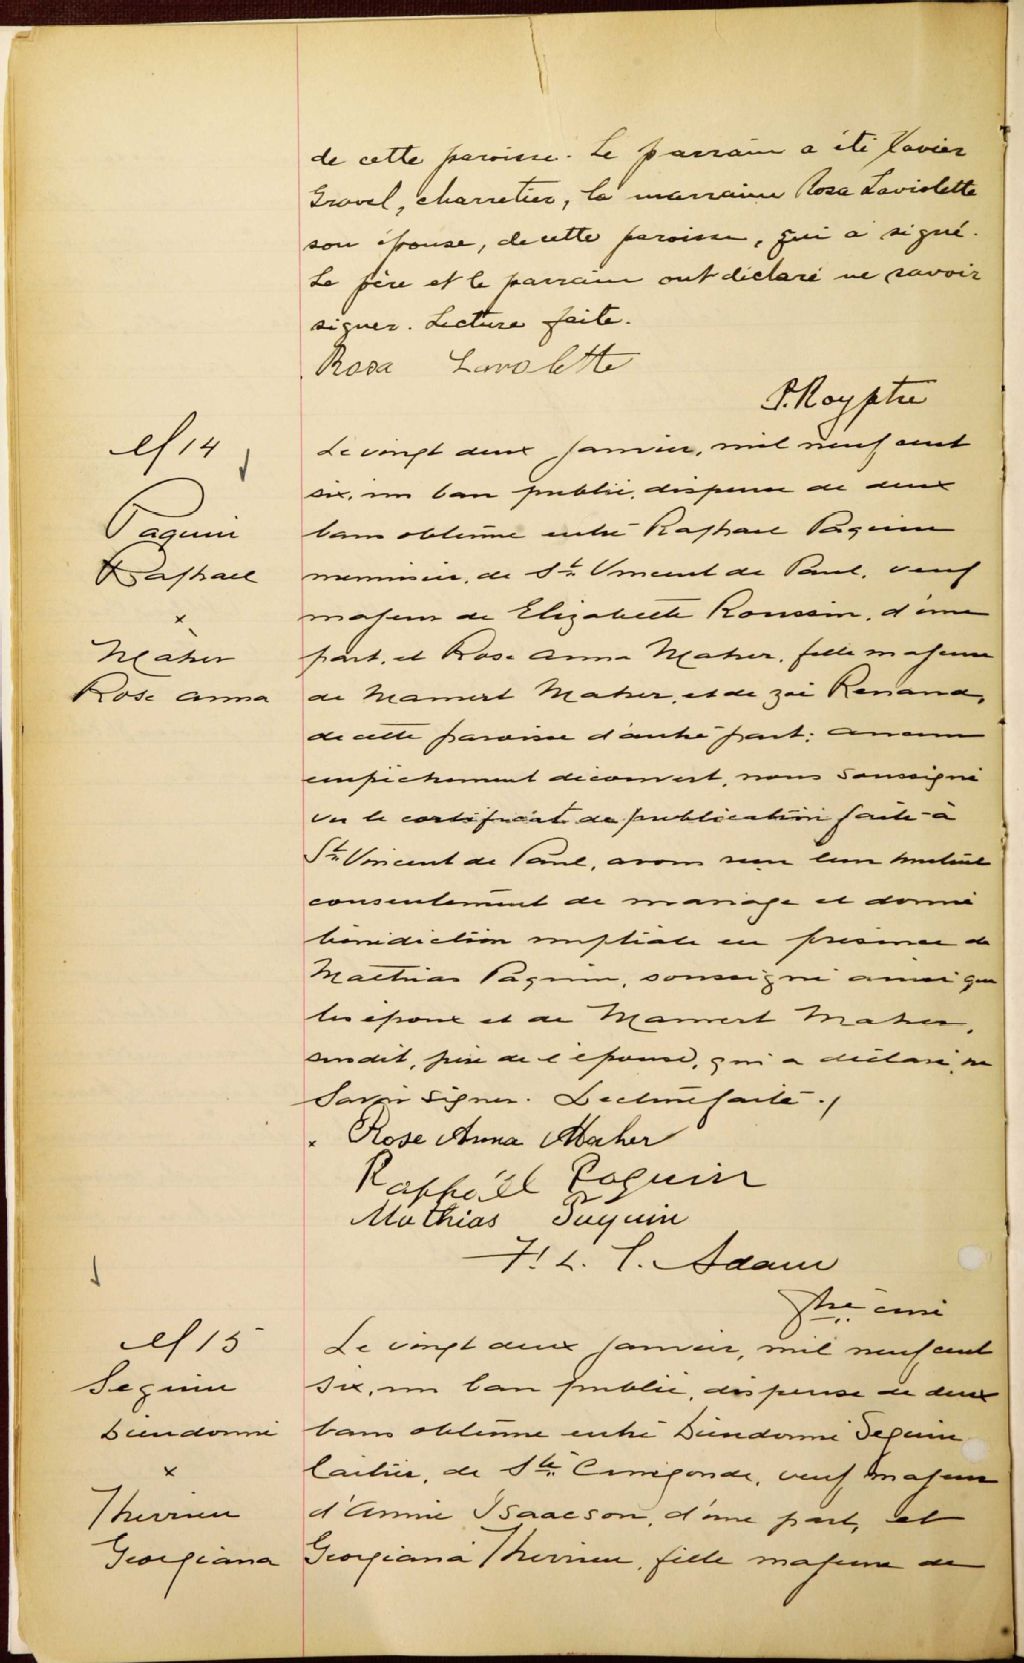 de cette paroisse. Le parrain a été Xavier
Gravel, charretier, la marraine Rosa Laviolette
son épouse, de cette paroisse, qui a signé.
Le père et le parrain ont déclaré ne savoir
signer. Lecture faite.
Rosa Lavolette
P. Roy ptre
M 14
Paquin
Raphael
x
Maher
Rose anna
Le vingt deux janvier, mil neuf cent
six, un ban publié, dispense de deux
bans obtenue entre Raphael Paquin
menuisier, de St. Vincent de Paul, veuf
majeur de Elizabeth Roussin, d'une
part, et Rose anna Maher, fille majeure
de Mamert Maher, et de zoé Renaud,
de cette paroisse d'autre part; aucun
empêchement découvert, nous soussigné
vu le certificat de publication faite à
St. Vincent de Paul, avons reçu leur mutuel
consentement de mariage et donné
bénédiction nuptiale en présence de
Mathias Paquin, soussigné ainsi que
les époux et de Mamert Maher,
susdit, père de l'épouse, qui a déclaré ne
Savoir signer. Lecture faite.
x Rose Anna Maher
Rapphaël Paguin
Mathias Paquin
F. L. T. Adam
Ptre curé
M 15
Seguin
Dieudonné
x
Therrien
Georgiana
Le vingt deux janvier, mil neuf cent
six, un ban publié, dispense de deux
bans obtenue entre Dieudonné Seguin
laitier, de Ste. Cunégonde, veuf majeur
d'Annie Isaacson, d'une part, et
Georgiana Therrien, fille majeure de